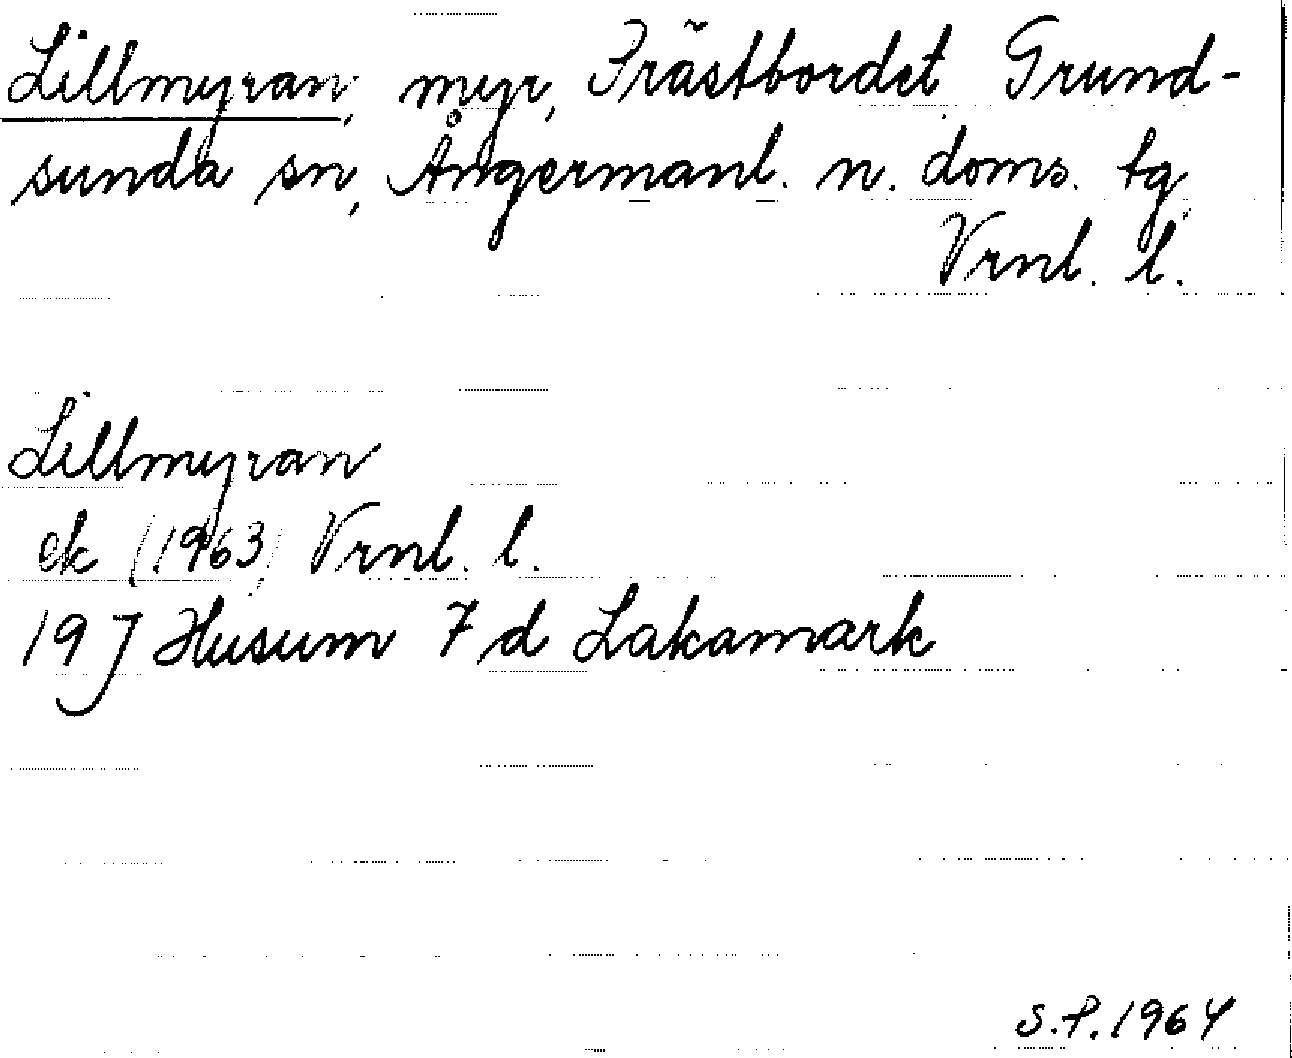 Lillmyran, myr, Prästbordet Grund-
sunda sn, Ångermanl. n. doms. tg,
Vrnl. l.
Lillmyran
ek (1963) Vrnl. l.
19 J Husum 7 d Lakamark
S.P. 1964